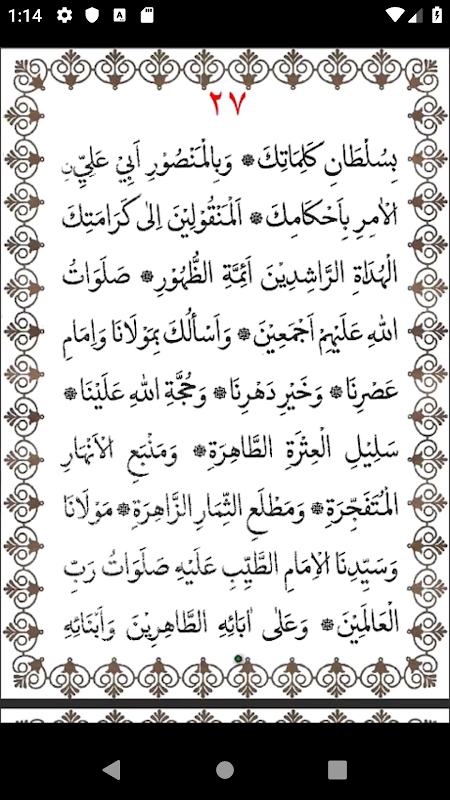 1:14
٢٧
بِسُلْطَانِ كَلِمَاتِكَ ۞ وَبِالْمَنْصُوْرِ اَبِيْ عَلِيِّنِ
الْاٰمِرِ بِاَحْكَامِكَ ۞ اَلْمَنْقُوْلِيْنَ اِلىٰ كَرَامَتِكَ
الْهُدَاةِ الرَّاشِدِيْنَ اَئِمَّةِ الظُّهُوْرِ ۞ صَلَوَاتُ
اللهِ عَلَيْهِمْ اَجْمَعِيْنَ ۞ وَاَسْأَلُكَ بِمَوْلَانَا وَاِمَامِ
عَصْرِنَا ۞ وَخَيْرِ دَهْرِنَا ۞ وَحُجَّةِ اللهِ عَلَيْنَا ۞
سَلِيْلِ الْعِتْرَةِ الطَّاهِرَةِ ۞ وَمَنْبَعِ الْاَنْهَارِ
الْمُتَفَجِّرَةِ ۞ وَمَطْلَعِ الثِّمَارِ الزَّاهِرَةِ ۞ مَوْلَانَا
وَسَيِّدِنَا الْاِمَامِ الطَّيِّبِ عَلَيْهِ صَلَوَاتُ رَبِّ
الْعَالَمِيْنَ ۞ وَعَلىٰ اٰبَائِهِ الطَّاهِرِيْنَ وَاَبْنَائِهِ